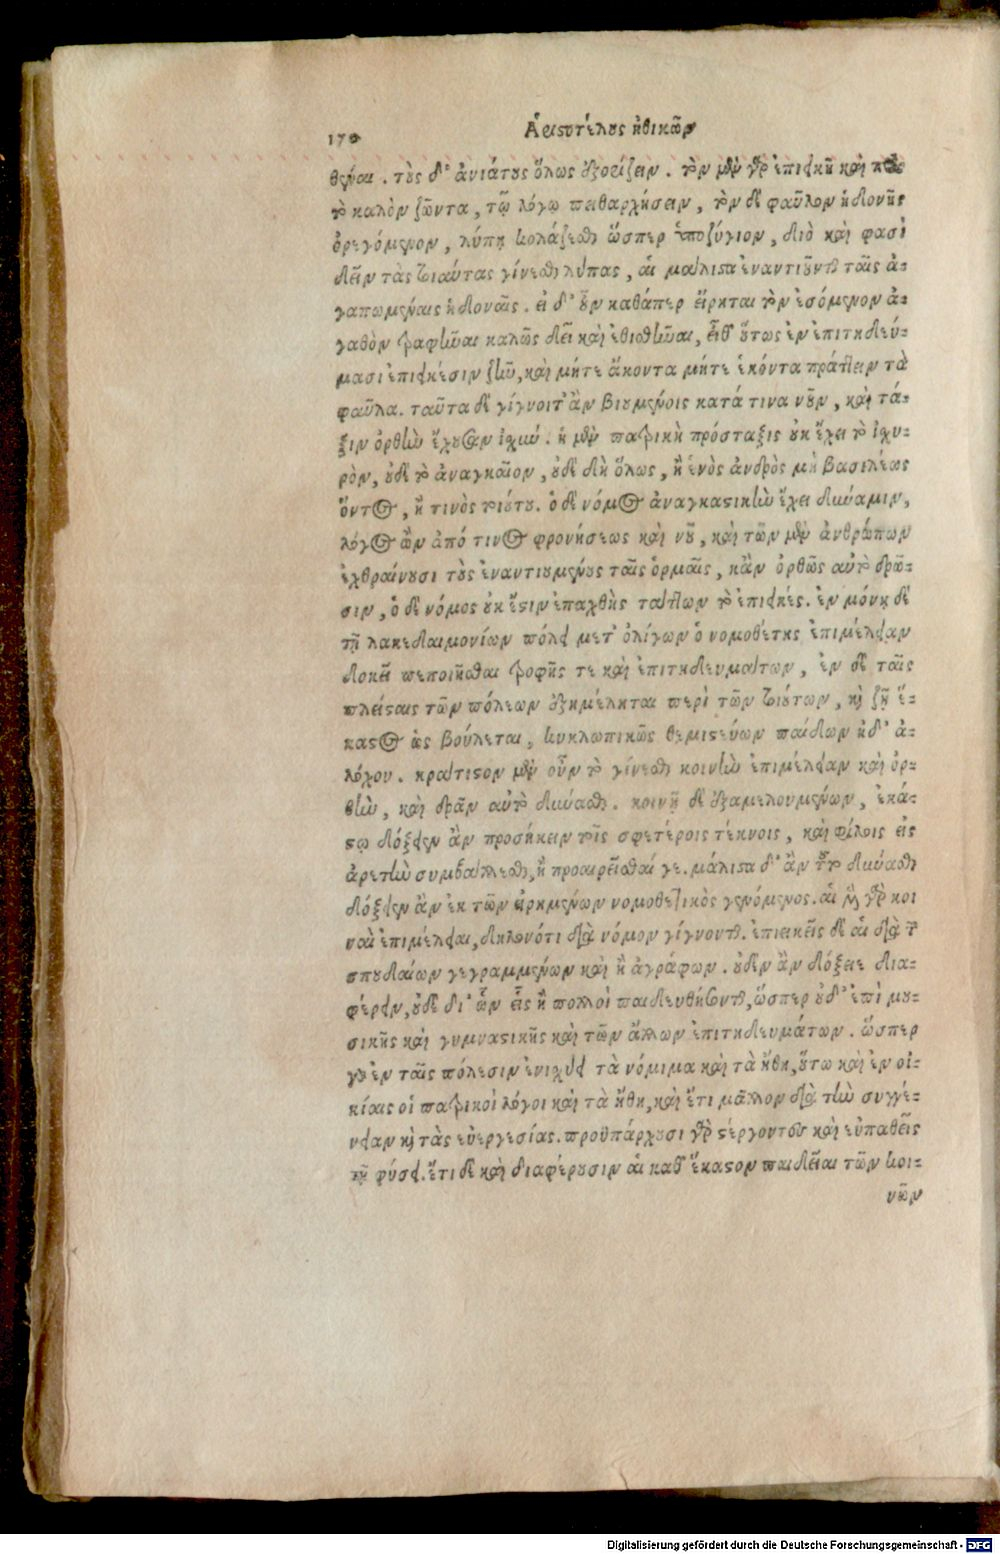 170 Ἀριστοτέλους ἠθικῶν
θεῖναι . τοὺς δ' ἀνιάτους ὅλως ἐξορίζειν . τὸν μὲν γὰρ ἐπιεικῆ καὶ πρὸς
τὸ καλὸν ζῶντα , τῷ λόγῳ πειθαρχήσειν , τὸν δὲ φαῦλον ἡδονῆς
ὀρεγόμενον , λύπῃ κολάζεσθαι ὥσπερ ὑποζύγιον , διὸ καὶ φασὶ
δεῖν τὰς τοιαύτας γίνεσθαι λύπας , αἱ μάλιστα ἐναντιοῦνται ταῖς ἀ-
γαπωμέναις ἡδοναῖς . εἰ δ' οὖν καθάπερ εἴρηται τὸν ἐσόμενον ἀ-
γαθὸν τραφῆναι καλῶς δεῖ καὶ ἐθισθῆναι, εἶθ' οὕτως ἐν ἐπιτηδεύ-
μασι ἐπιεικέσιν ζῆν, καὶ μήτε ἄκοντα μήτε ἑκόντα πράττειν τὰ
φαῦλα. ταῦτα δὲ γίγνοιτ' ἂν βιουμένοις κατά τινα νοῦν , καὶ τά-
ξιν ὀρθὴν ἔχουσαν ἰσχύν . ἡ μὲν πατρικὴ πρόσταξις οὐκ ἔχει τὸ ἰσχυ-
ρὸν, οὐδὲ τὸ ἀναγκαῖον , οὐδὲ δὴ ὅλως , ἡ ἑνὸς ἀνδρὸς μὴ βασιλέως
ὄντος , ἤ τινὸς τοιούτου. ὁ δὲ νόμος ἀναγκαστικὴν ἔχει δύναμιν,
λόγος ὢν ἀπό τινος φρονήσεως καὶ νοῦ , καὶ τῶν μὲν ἀνθρώπων
ἐχθραίνουσι τοὺς ἐναντιουμένους ταῖς ὁρμαῖς , κἂν ὀρθῶς αὐτὸ δρῶ-
σιν , ὁ δὲ νόμος οὐκ ἔστιν ἐπαχθὴς τάττων τὸ ἐπιεικές. ἐν μόνῃ δὲ
τῇ λακεδαιμονίων πόλει μετ' ὀλίγων ὁ νομοθέτης ἐπιμέλειαν
δοκεῖ πεποιῆσθαι τροφῆς τε καὶ ἐπιτηδευμάτων , ἐν δὲ ταῖς
πλείσταις τῶν πόλεων ἐξημέληται περὶ τῶν τοιούτων , καὶ ζῇ ἕ-
καστος ὡς βούλεται, κυκλωπικῶς θεμιστεύων παίδων ἠδ' ἀ-
λόχου . κράτιστον μὲν οὖν τὸ γίνεσθαι κοινὴν ἐπιμέλειαν καὶ ὀρ-
θὴν , καὶ δρᾶν αὐτὸ δύνασθαι . κοινῇ δὲ ἐξαμελουμένων , ἑκά-
στῳ δόξειεν ἂν προσήκειν τοῖς σφετέροις τέκνοις , καὶ φίλοις εἰς
ἀρετὴν συμβάλλεσθαι, ἢ προαιρεῖσθαί γε. μάλιστα δ' ἂν τοῦτο δύνασθαι
δόξειεν ἂν ἐκ τῶν εἰρημένων νομοθετικὸς γενόμενος. αἱ μὲν γὰρ κοι
ναὶ ἐπιμέλειαι, δηλονότι διὰ νόμον γίγνονται. ἐπιεικεῖς δὲ αἱ διὰ τῶν
σπουδαίων γεγραμμένων καὶ ἢ ἀγράφων . οὐδὲν ἂν δόξειε δια-
φέρειν, οὐδὲ δι' ὧν εἷς ἢ πολλοὶ παιδευθήσονται, ὥσπερ οὐδ' ἐπὶ μου-
σικῆς καὶ γυμναστικῆς καὶ τῶν ἄλλων ἐπιτηδευμάτων . ὥσπερ
γὰρ ἐν ταῖς πόλεσιν ἐνισχύει τὰ νόμιμα καὶ τὰ ἤθη, οὕτω καὶ ἐν οἰ-
κίαις οἱ πατρικοὶ λόγοι καὶ τὰ ἤθη, καὶ ἔτι μᾶλλον διὰ τὴν συγγέ-
νειαν καὶ τὰς εὐεργεσίας. προϋπάρχουσι γὰρ στέργοντες καὶ εὐπαθεῖς
τῇ φύσει. ἔτι δὲ καὶ διαφέρουσιν αἱ καθ' ἕκαστον παιδεῖαι τῶν κοι-
νῶν
Digitalisierung gefördert durch die Deutsche Forschungsgemeinschaft - DFG